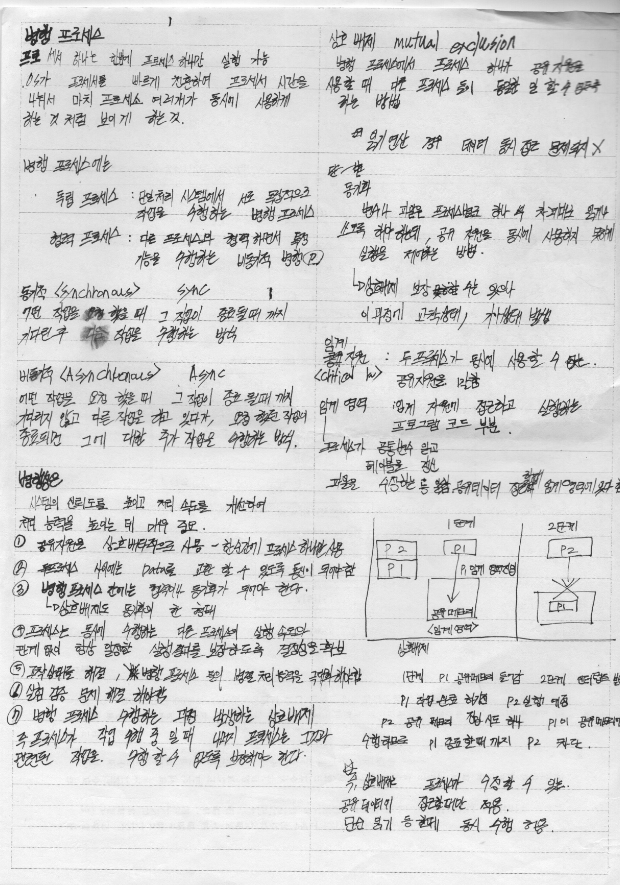 병행 프로세스
프로세서 하나는 한번에 프로세스 하나만 실행 가능
OS가 프로세서를 빠르게 전환하여 프로세서 시간을
나눠서 마치 프로세스 여러개가 동시에 사용하게
하는 것 처럼 보이게 하는것.
병행 프로세스에는
독립 프로세스 : 단일처리 시스템에서 서로 독립적으로
작업을 수행하는 병행 프로세스
협력 프로세스 : 다른 프로세스와 협력하면서 특정
기능을 수행하는 비동기적 병행 (P)
동기적 <Synchronous> Sync
어떤 작업을 요청 했을 때 그 작업이 종료될 때 까지
기다린후 작업을 수행하는 방식
비동기적 <Asynchronous> Async
어떤 작업을 요청 했을 때 그 작업이 종료 될때 까지
기다리지 않고 다른 작업을 하고 있다가, 요청 했던 작업이
종료되면 그에 대한 추가 작업을 수행하는 방식.
병행성은
시스템의 신뢰도를 높이고 처리 속도를 개선하여
처리 능력을 높이는 데 매우 중요.
① 공유자원을 상호배타적으로 사용 - 한순간에 프로세스 하나만 사용
② 프로세스 사이에는 Data를 교환 할 수 있도록 통신이 되어야 함
③ 병행 프로세스 간에는 동기화가 되어야 한다.
상호배제도 동기화의 한 형태
④ 프로세스는 동시에 수행하는 다른 프로세스의 실행 속도와
관계 없이 항상 일정한 실행결과를 보장하도록 결정성을 확보
⑤ 교착상태를 해결, 병행 프로세스 들의 병렬 처리능력을 극대화 해야함
⑥ 실행 검증 문제 해결 해야함
⑦ 병행 프로세스 수행하는 과정 발생하는 상호배제
즉 프로세스가 작업 수행 중 일 때 나머지 프로세스는 그것과
관련된 작업을 수행할 수 없도록 보장해야 한다.
상호 배제 mutual exclusion
병행 프로세스에서 프로세스 하나가 공유 자원을
사용할 때 다른 프로세스 들이 동일한 일 할 수 없도록
하는 방법
읽기 연산 경우 데이터 동시 접근 문제되지 X
동기화
변수나 파일은 프로세스별로 하나 씩 차례대로 읽거나
쓰도록 해야 하는데, 공유 자원을 동시에 사용하지 못하게
실행을 제어하는 방법.
상호배제 보장 할 수는 있으나
이 과정에 교착상태, 기아상태 발생
임계
공유자원 : 두 프로세스가 동시에 사용할 수 없는.
<critical> 공유자원을 말함
임계 영역 : 임계 자원에 접근하고 실행하는
프로그램 코드 부분.
프로세스가 공통변수 읽고
테이블을 갱신
파일을 수정하는 등 일함
1단계 2단계
P2 P1 P2
P1 P1 임계 영역진입
공유메모리 P1
<임계 영역>
상호배제
1단계 P1 공유메모리 2단계
P1 작업 완료 하기전 P2 실행
P2 공유 메모리 진입 시도 하나 P1이 공유메모리
수행하므로 P1 종료할때 까지 P2 차단.
즉, 상호배제는 프로세스가 수정할 수 있는
공유데이터에 접근할때만 적용.
단순 읽기 등 할때 동시 수행 허용.